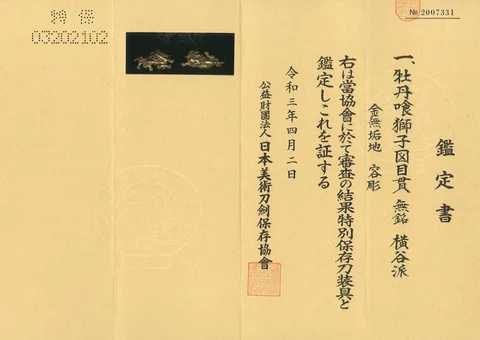 № 2007331
鑑定書
一、牡丹喰獅子図目貫 無銘 横谷派
金無垢地 容彫
右は當協會に於て審査の結果特別保存刀装具と
鑑定しこれを証する
令和三年四月二日
公益財團法人 日本美術刀剣保存協會
特保
03202102